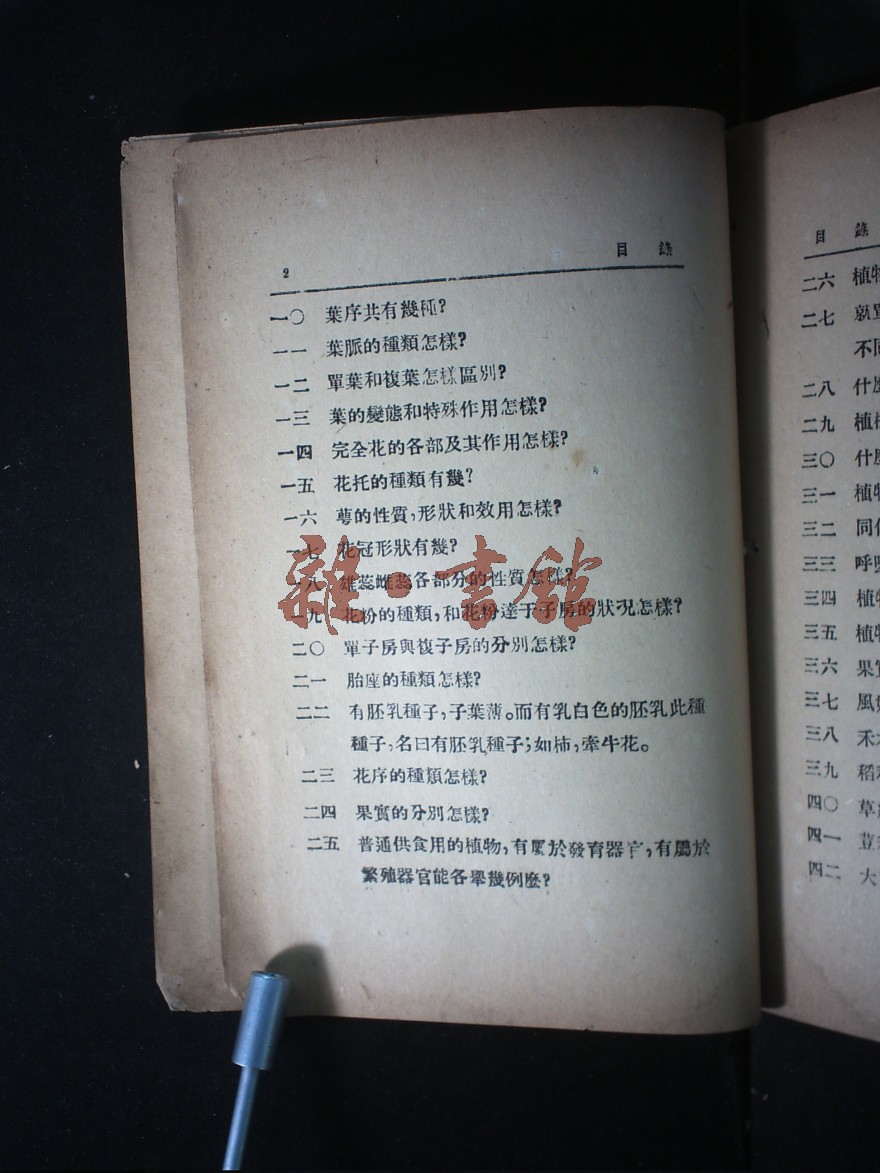 2 目錄
一〇 葉序共有幾種?
一一 葉脈的種類怎樣?
一二 單葉和複葉怎樣區別?
一三 葉的變態和特殊作用怎樣?
一四 完全花的各部及其作用怎樣?
一五 花托的種類有幾?
一六 萼的性質,形狀和效用怎樣?
一七 花冠形狀有幾?
一八 雄蕊雌蕊各部分的性質怎樣?
一九 花粉的種類,和花粉達于子房的狀况怎樣?
二〇 單子房與複子房的分別怎樣?
二一 胎座的種類怎樣?
二二 有胚乳種子,子葉薄。而有乳白色的胚乳此種
種子,名曰有胚乳種子;如柿,牽牛花。
二三 花序的種類怎樣?
二四 果實的分別怎樣?
二五 普通供食用的植物,有屬於發育器官,有屬於
繁殖器官能各舉幾例麼?
雜·書館
目錄
二六 植物
二七 就單
不同
二八 什麼
二九 植
三〇 什麼
三一 植物
三二 同化
三三 呼吸
三四 植物
三五 植物
三六 果實
三七 風
三八 禾本
三九 稻
四〇 草
四一 荳
四二 大